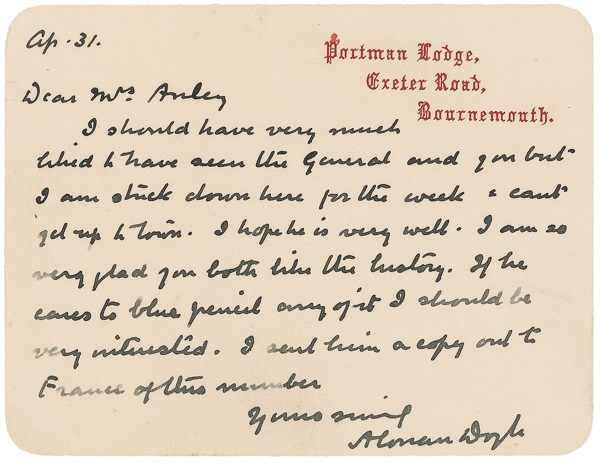 Ap. 31.
Portman Lodge,
Exeter Road,
Bournemouth.
Dear Mrs Anley
I should have very much
liked to have seen the General and you but
I am stuck down here for the week & cant
get up to town. I hope he is very well. I am so
very glad you both like the history. If he
cares to blue pencil any of it I should be
very interested. I sent him a copy out to
France of this number
Yours sincl
A Conan Doyle